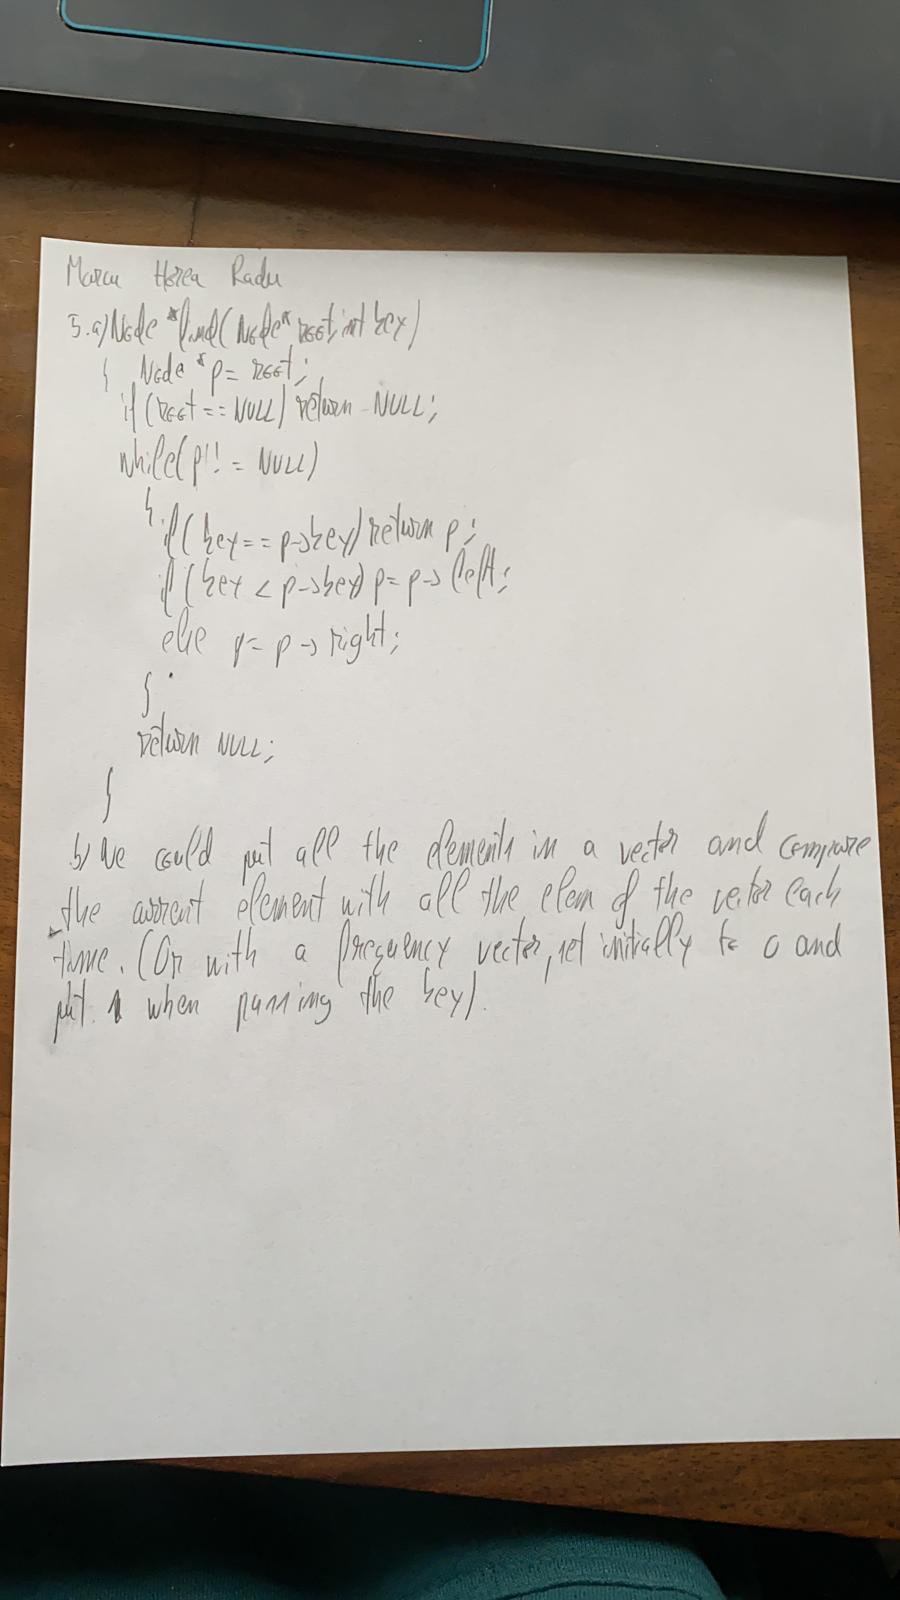 Marcu Horea Radu
5.a) Node *find(Node* root, int key)
{ Node *p = root;
if (root == NULL) return NULL;
while(p != NULL)
{
if (key == p->key) return p;
if (key < p->key) p = p -> left;
else p = p -> right;
}
return NULL;
}
b) We could put all the elements in a vector and compare
the current element with all the elem of the vector each
time. (Or with a frequency vector, set initially to 0 and
put 1 when passing the key).